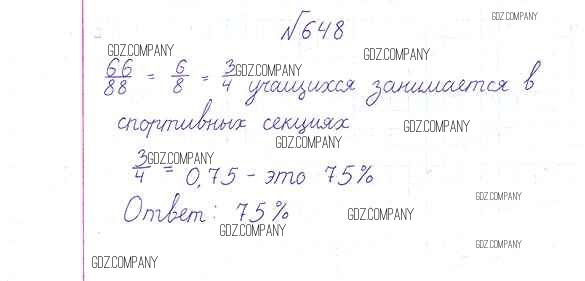 №648
GDZ.COMPANY
GDZ.COMPANY
GDZ.COMPANY
66/88 = 6/8 = 3/4 учащихся занимается в
GDZ.COMPANY
спортивных секциях
GDZ.COMPANY
GDZ.COMPANY
3/4 = 0,75 - это 75%
GDZ.COMPANY
GDZ.COMPANY
Ответ: 75%
GDZ.COMPANY
GDZ.COMPANY
GDZ.COMPANY
GDZ.COMPANY